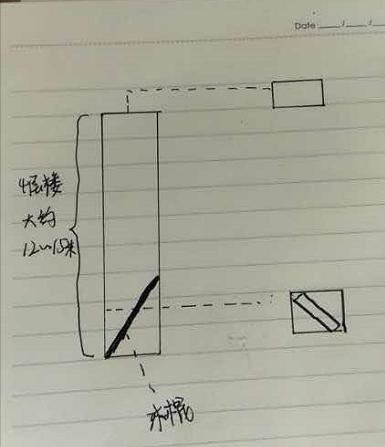 Date / /
4层楼
大约
12~15米
木棍